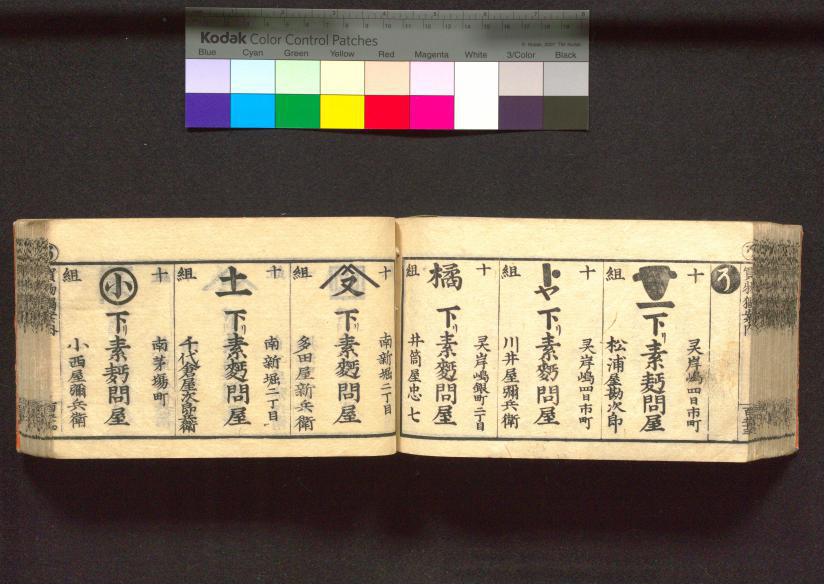 Kodak Color Control Patches
© Kodak, 2007 TM: Kodak
Blue Cyan Green Yellow Red Magenta White 3/Color Black
う
十組
灵岸嶋四日市町
下リ素麪問屋
松浦屋勘次郎
十組
トヤ
灵岸嶋四日市町
下リ素麪問屋
川井屋彌兵衛
十組
橘
灵岸嶋銀町二丁目
下リ素麪問屋
井筒屋忠七
十組
又
南新堀二丁目
下リ素麪問屋
多田屋新兵衛
十組
土
南新堀二丁目
下リ素麪問屋
千代倉屋次郎兵衛
十組
小
南茅場町
下リ素麪問屋
小西屋彌兵衛
買物獨案内